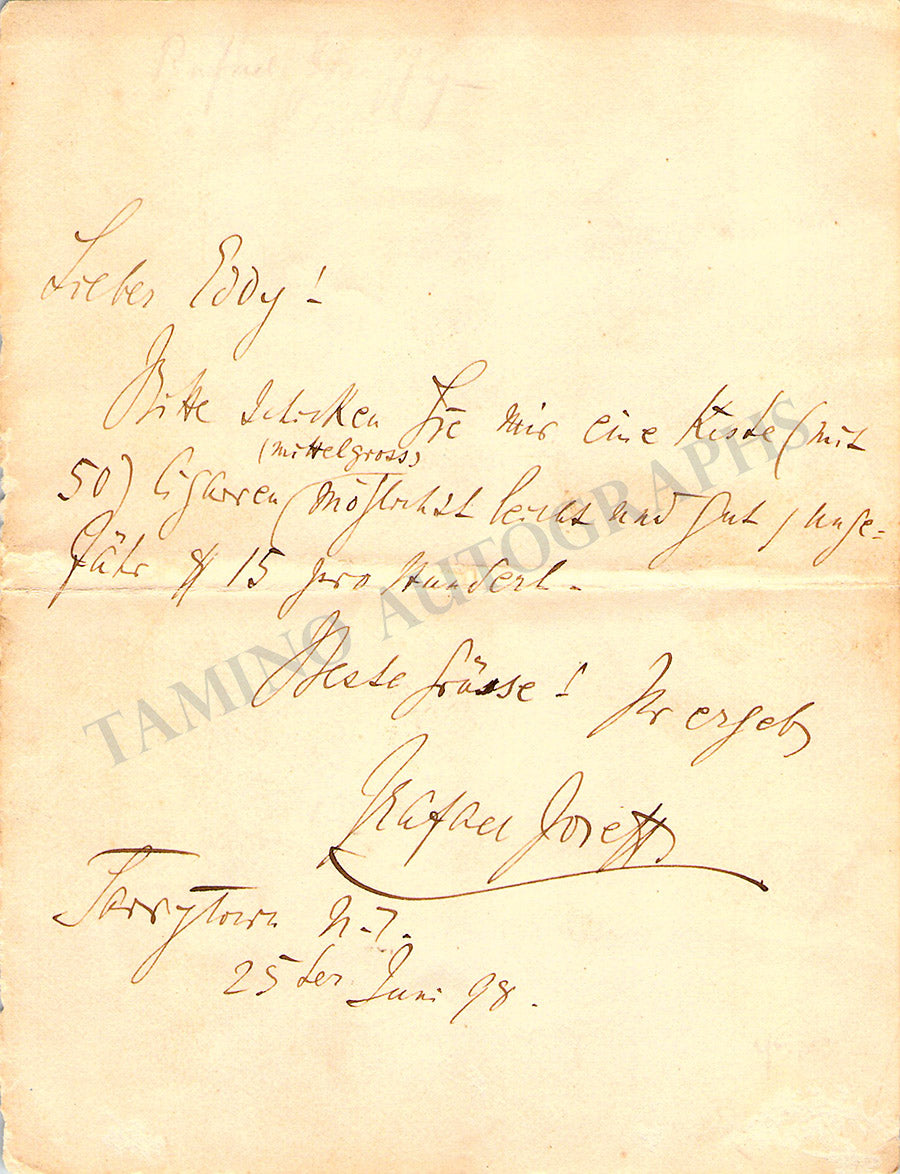 Lieber Eddy!
Bitte schicken Sie mir eine Kiste (mit
(mittelgross)
50) Cigarren (möglichst leicht und gut, unge-
fähr $ 15 pro Hundert.
Beste Grüsse! Ihr ergeb
Rafael Joseffy
Tarrytown N.Y.
25ter Juni 98.
TAMINO AUTOGRAPHS